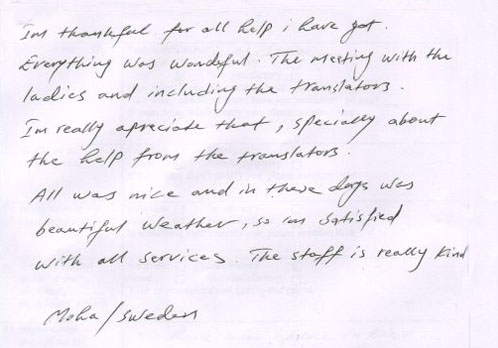 Im thankful for all help i have got.
Everything was wondeful. The meeting with the
ladies and including the translators.
Im really apreciate that, specially about
the help from the translators.
All was nice and in these days was
beautiful weather, so im satisfied
with all services. The staff is really kind
Moha/Sweden